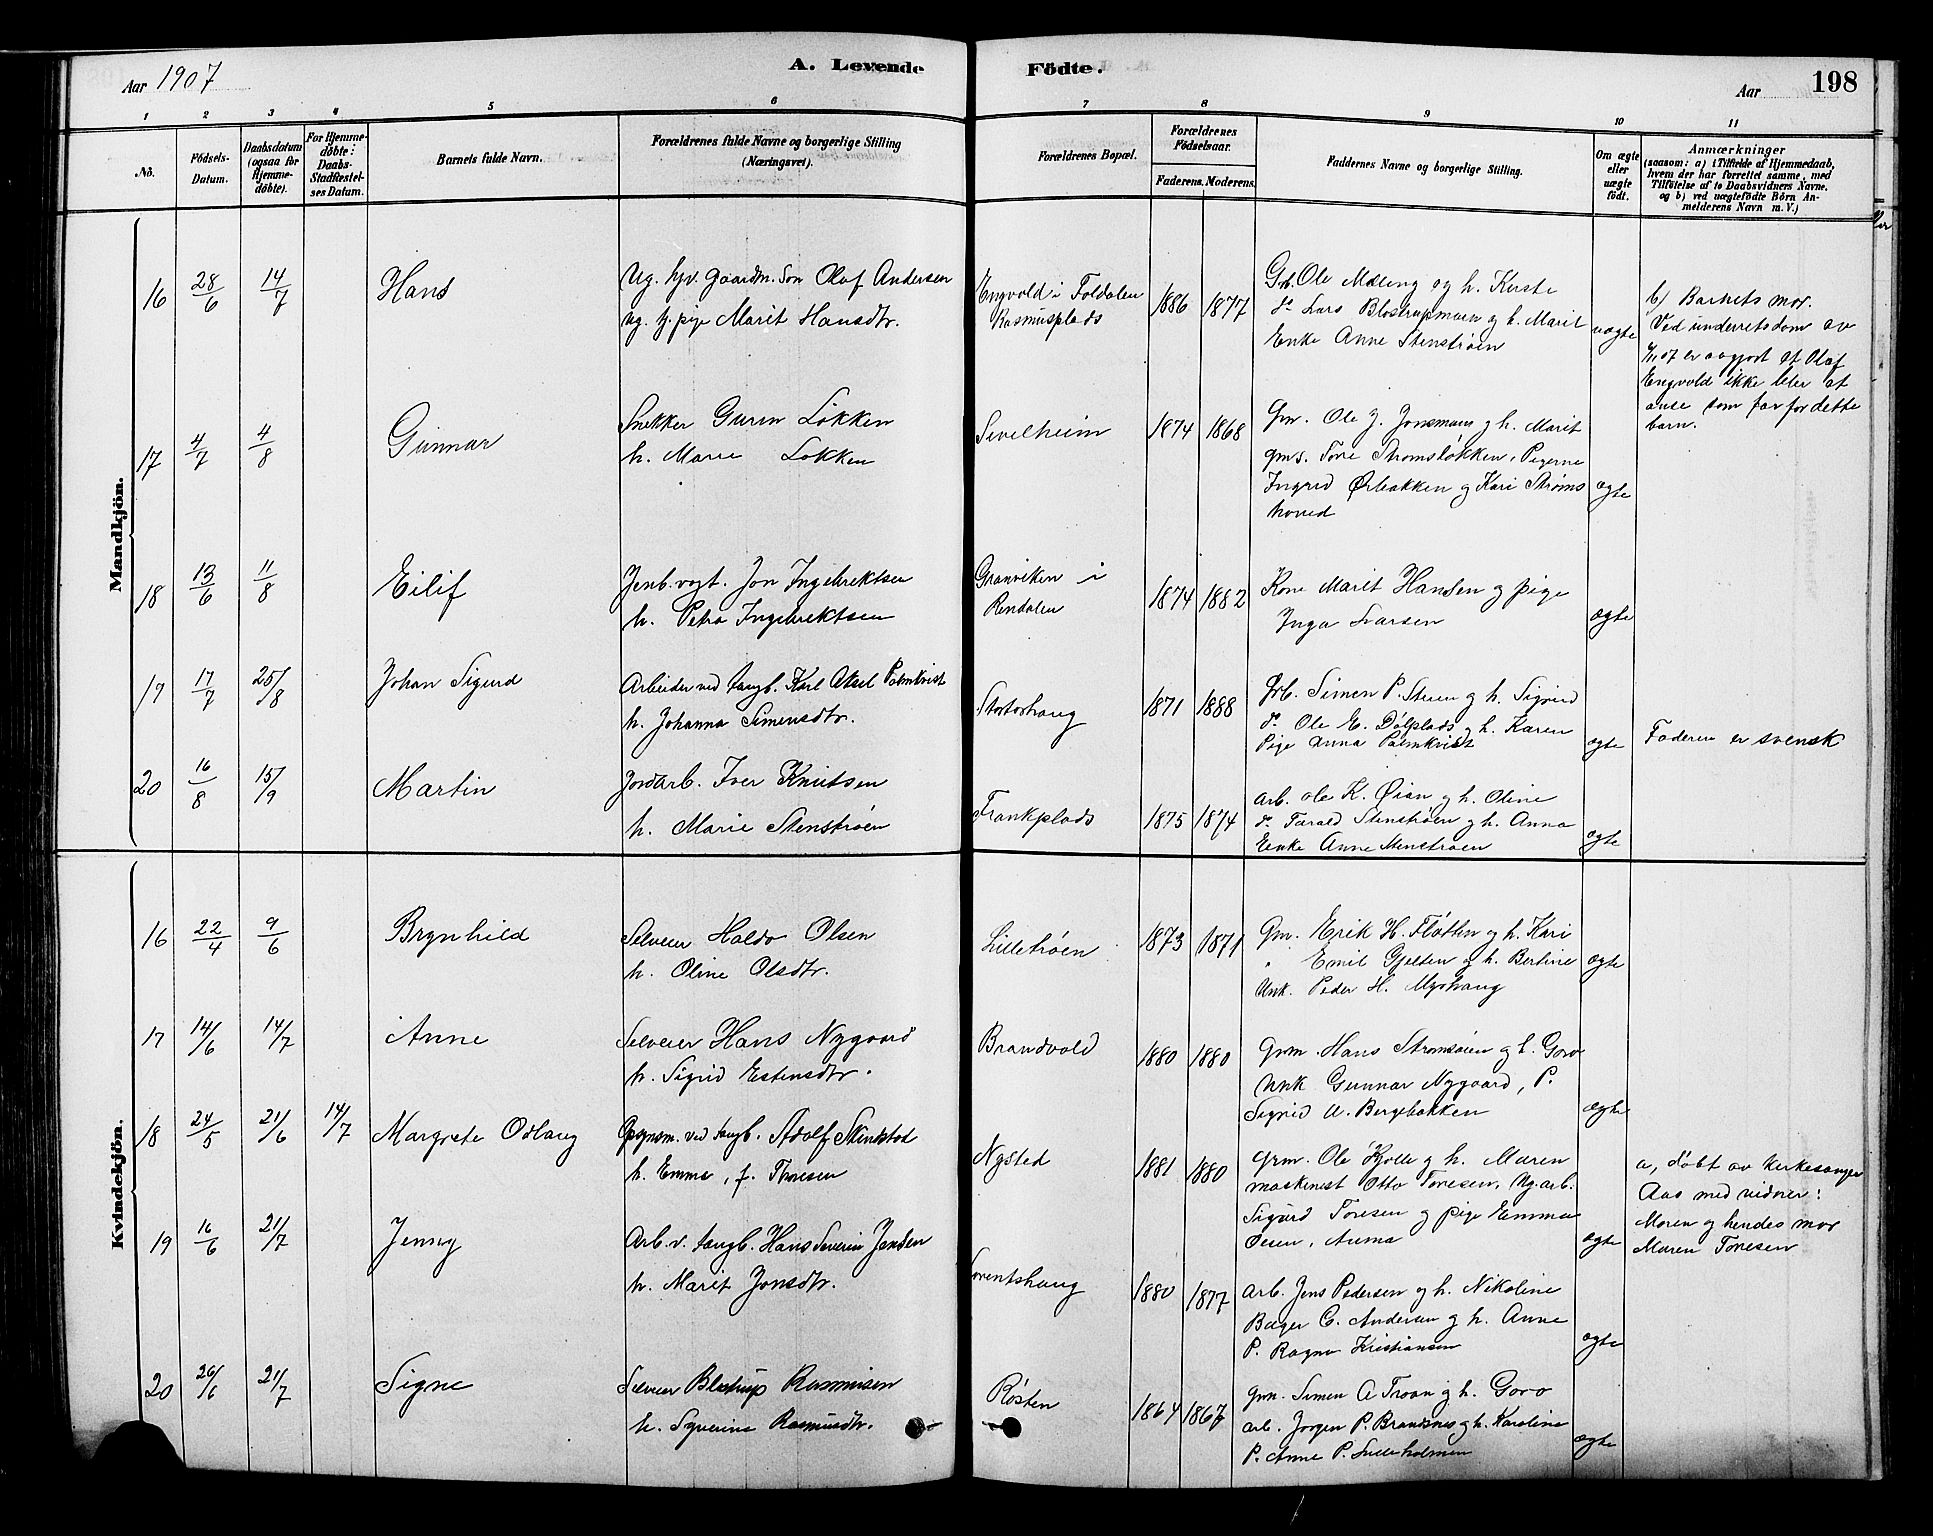 Aar 1907
A. Levende
Födte.
Aar
198
1 2 3 4 5 6 7 8 9 10 11
No.
Födsels-
Datum.
Daabsdatum
(ogsaa for
Hjemme-
döbte).
For Hjemme-
döbte:
Daabs-
Stadfæstel-
ses Datum.
Barnets fulde Navn.
Forældrenes fulde Navne og borgerlige Stilling
(Næringsvei).
Forældrenes Bopæl.
Forældrenes
Födselsaar.
Faderens. Moderens.
Faddernes Navne og borgerlige Stilling.
Om ægte
eller
uægte
födt.
Anmærkninger
(saasom: a) i Tilfælde af Hjemmedaab,
hvem der har forrettet samme, med
Tilföielse af to Daabsvidners Navne,
og b) ved uægtefödte Börn An-
melderens Navn m. V.)
Mandkjön.
16 28/6 14/7 Hans
Ug. hjv. gaardm. Søn Olaf Andersen
ug. tj. pige Marit Hansdtr.
Engvold i Foldalen
Rasmusplads
1886 1877
Grb. Ole Meling og h. Kirste
do Lars Blostrupmoen og h. Marit
Enke Anne Stenstrøen
uægte
b) Barnets mor.
Ved underretsdom av
er avgjort at Olaf
Engvold ikke blir at
anse som far for dette
barn.
17 4/7 4/8 Gunnar
Snekker Gurin Løkken
h. Marie Løkken
Sivelheim
1874 1868
Gm. Ole J. Jonsmoen og h. Marit
gms. Tore Strømsløkken, Pigerne
Ingrid Ørbakken og Kari Strøms
hoved
ægte
18 13/6 11/8 Eilif
Jenb.vogt. Jon Ingebrektsen
h. Petra Ingebrektsen
Granviken i
Rendalen
1874 1882
Kone Marit Hansen og pige
Inga Ivarsen
ægte
19 17/7 25/8 Johan Sigurd
Arbeider ved sangb. Karl Aksel Palmkvist
h. Johanna Simensdtr.
Stortorhaug
1871 1888
Grb. Simen P. Steien og h. Sigrid
do Ole E. Dølplads og h. Karen
Pige Anna Palmkvist
ægte
Faderen er svensk
20 16/8 15/9 Martin
Jordarb. Iver Knutsen
h. Marie Stenstrøen
Frankplads
1875 1874
arb. Ole K. Øian og h. Oline
do Tarald Stenstrøen og h. Anna
Enke Anne Stenstrøen
ægte
Kvindekjön.
16 22/4 9/6 Brynhild
Selveier Haldo Olsen
h. Oline Olsdtr.
Lilletrøen
1873 1871
Gm. Erik H. Fløtten og h. Kari
" Emil Gjelten og h. Berline
Unk. Peder H. Myrhaug
ægte
17 14/6 14/7 Anne
Selveier Hans Nygaard
h. Sigrid Estensdtr.
Brandvold
1880 1880
Grm. Hans Strømsøien og h. Goro
Unk Gunnar Nygaard, P.
Sigrid A. Bergebakken
ægte
18 24/5 21/6 14/7 Margrete Odlaug
Opsynsm. ved sangb. Adolf Skinkstad
h. Emma, f. Thoresen
Nysted
1881 1880
Grm. Ole Kjølle og h. Maren
maskinist Otto Toresen, Ug.arb.
Sigurd Toresen og pige Emma
Olsen, Auma
ægte
a, døbt av kirkesanger
Aas med vidner:
Moren og hendes mor
Maren Toresen
19 16/6 21/7 Jenny
Arb. v. sangb. Hans Severin Jensen
h. Marit Jonsdtr.
Lorentshaug
1880 1877
arb. Jens Pedersen og h. Nikoline
Bager C. Andersen og h. Anne
P. Ragna Kristiansen
ægte
20 26/6 21/7 Signe
Selveier Blostrup Rasmusen
h. Syverine Rasmusdtr.
Røsten
1864 1867
Grm. Simen A Troan og h. Goro
arb. Jørgen P. Brandsnes og h. Karoline
P. Anne P. Lilleholmen
ægte